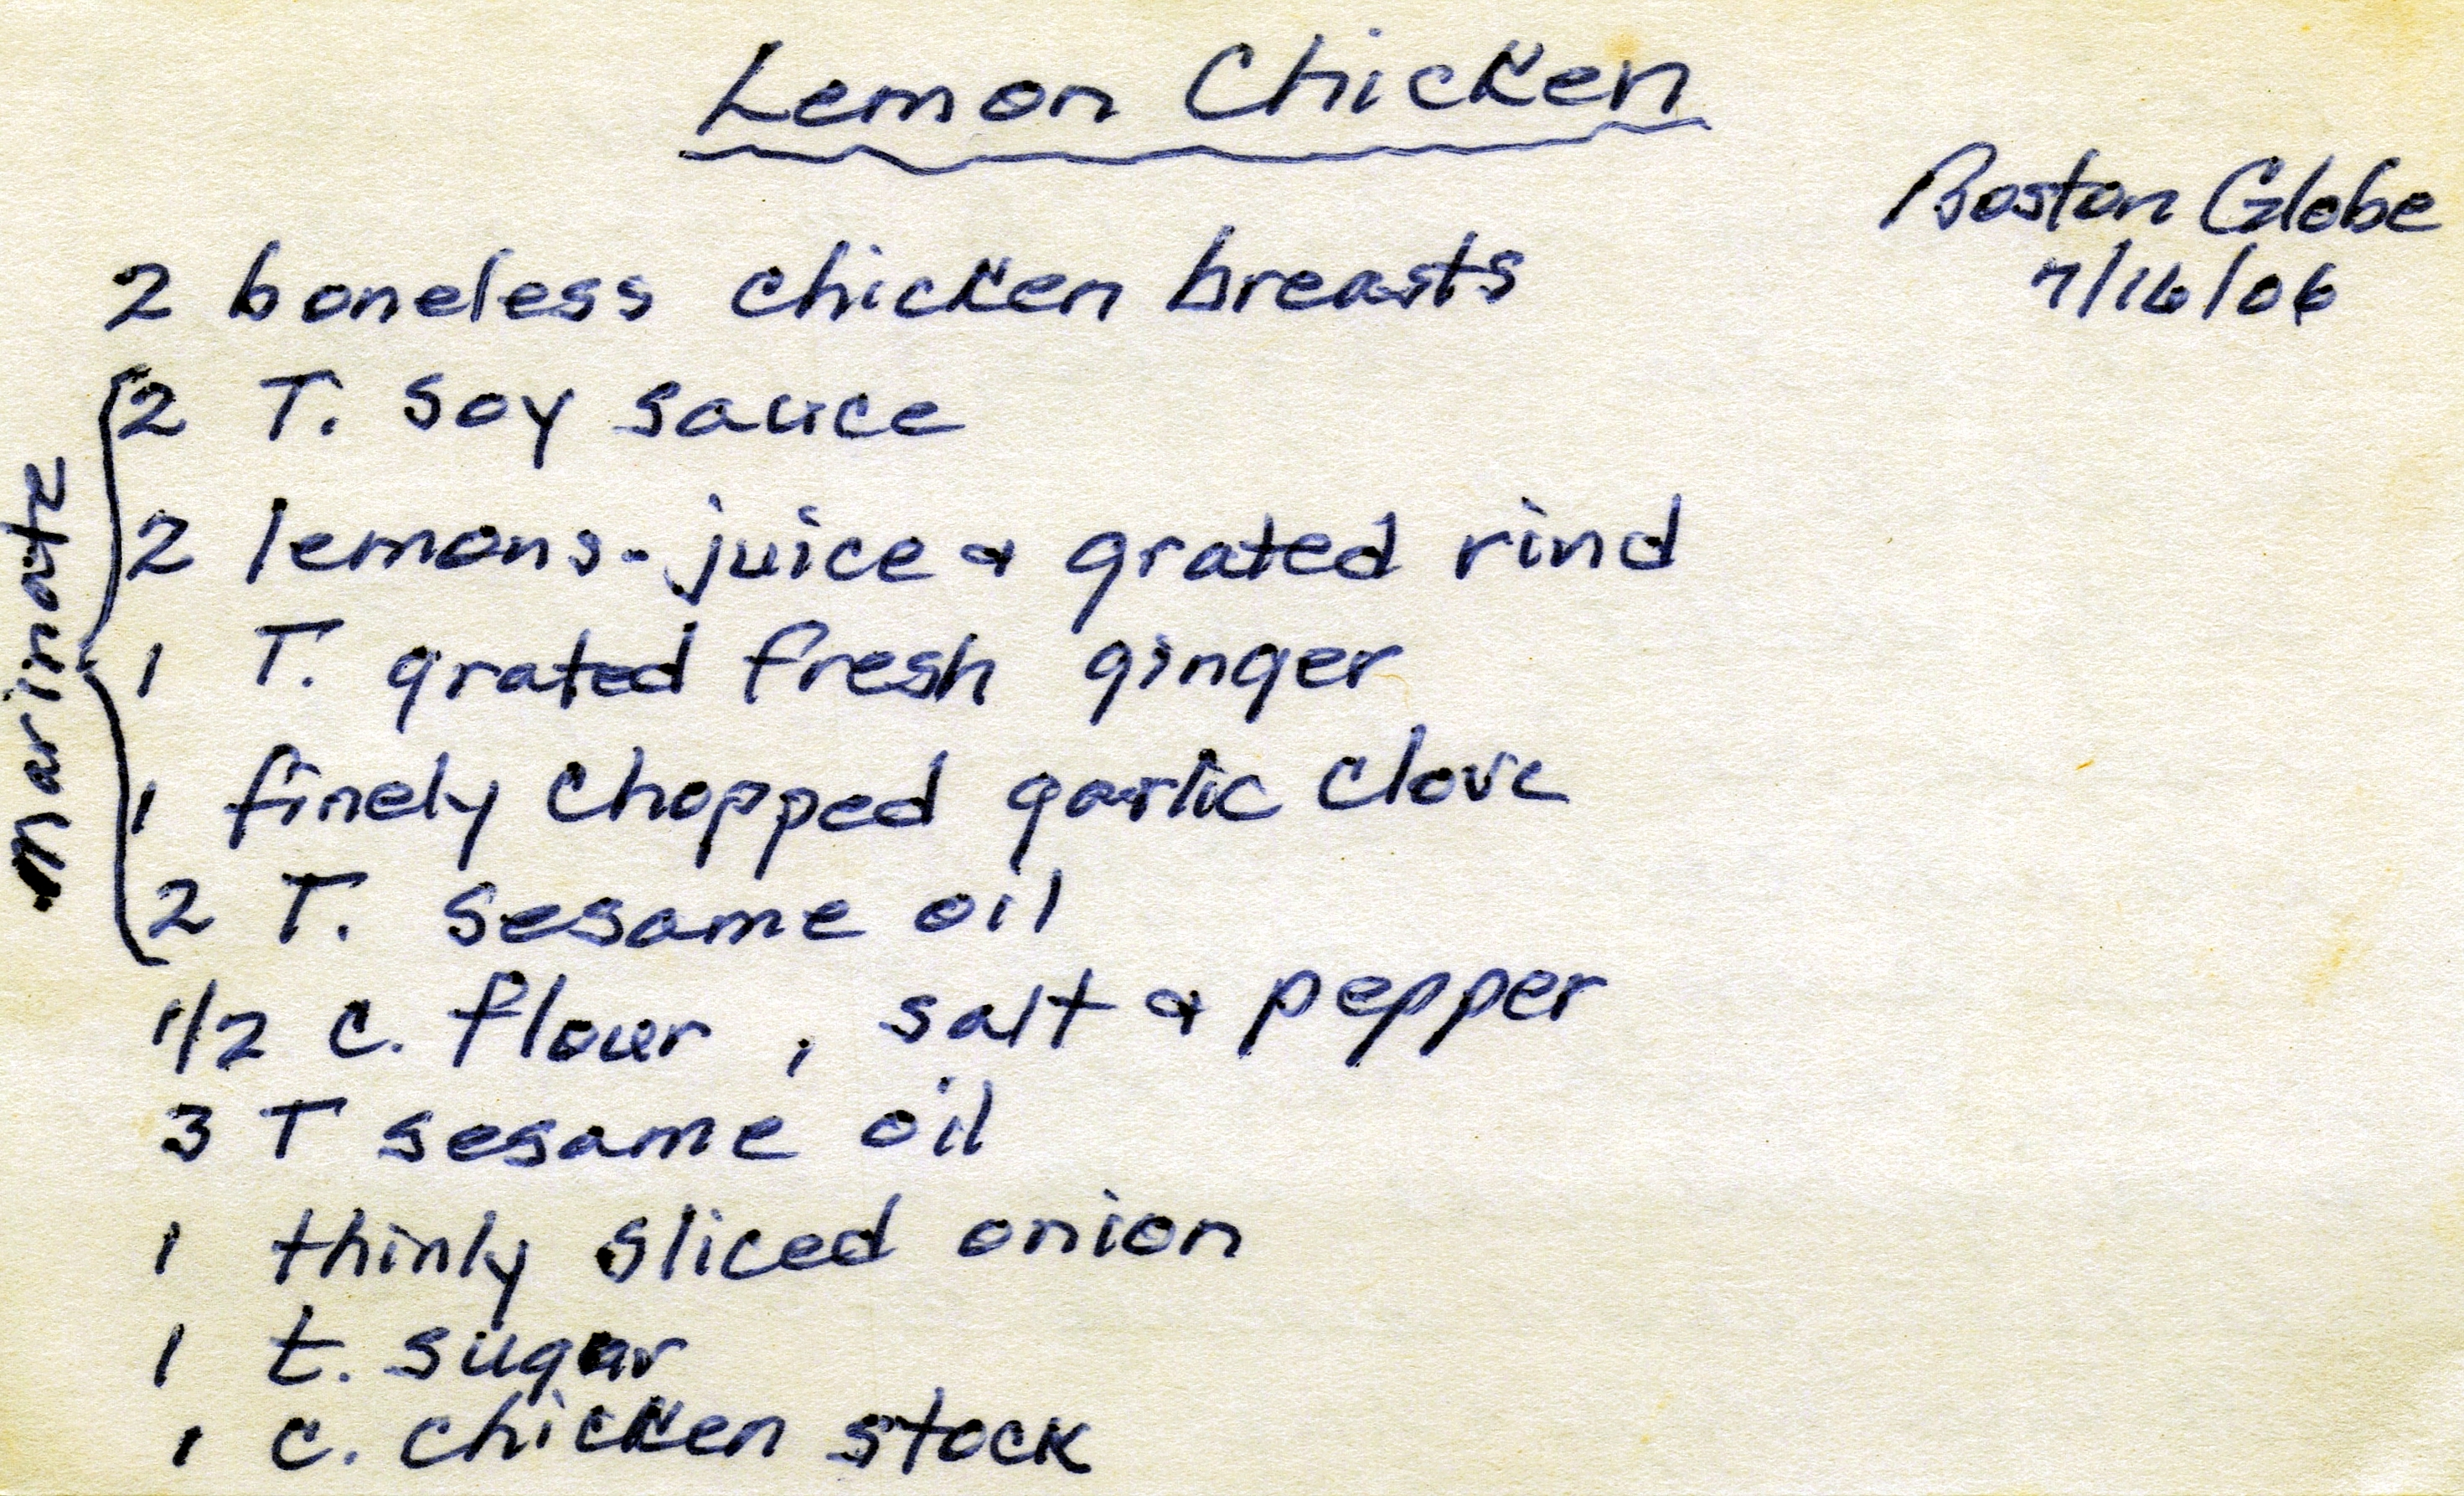 Lemon Chicken
Boston Globe
7/16/06
2 boneless chicken breasts
marinate
2 T. soy sauce
2 lemons - juice & grated rind
1 T. grated fresh ginger
1 finely chopped garlic clove
2 T. sesame oil
1/2 c. flour , salt & pepper
3 T sesame oil
1 thinly sliced onion
1 t. sugar
1 c. chicken stock